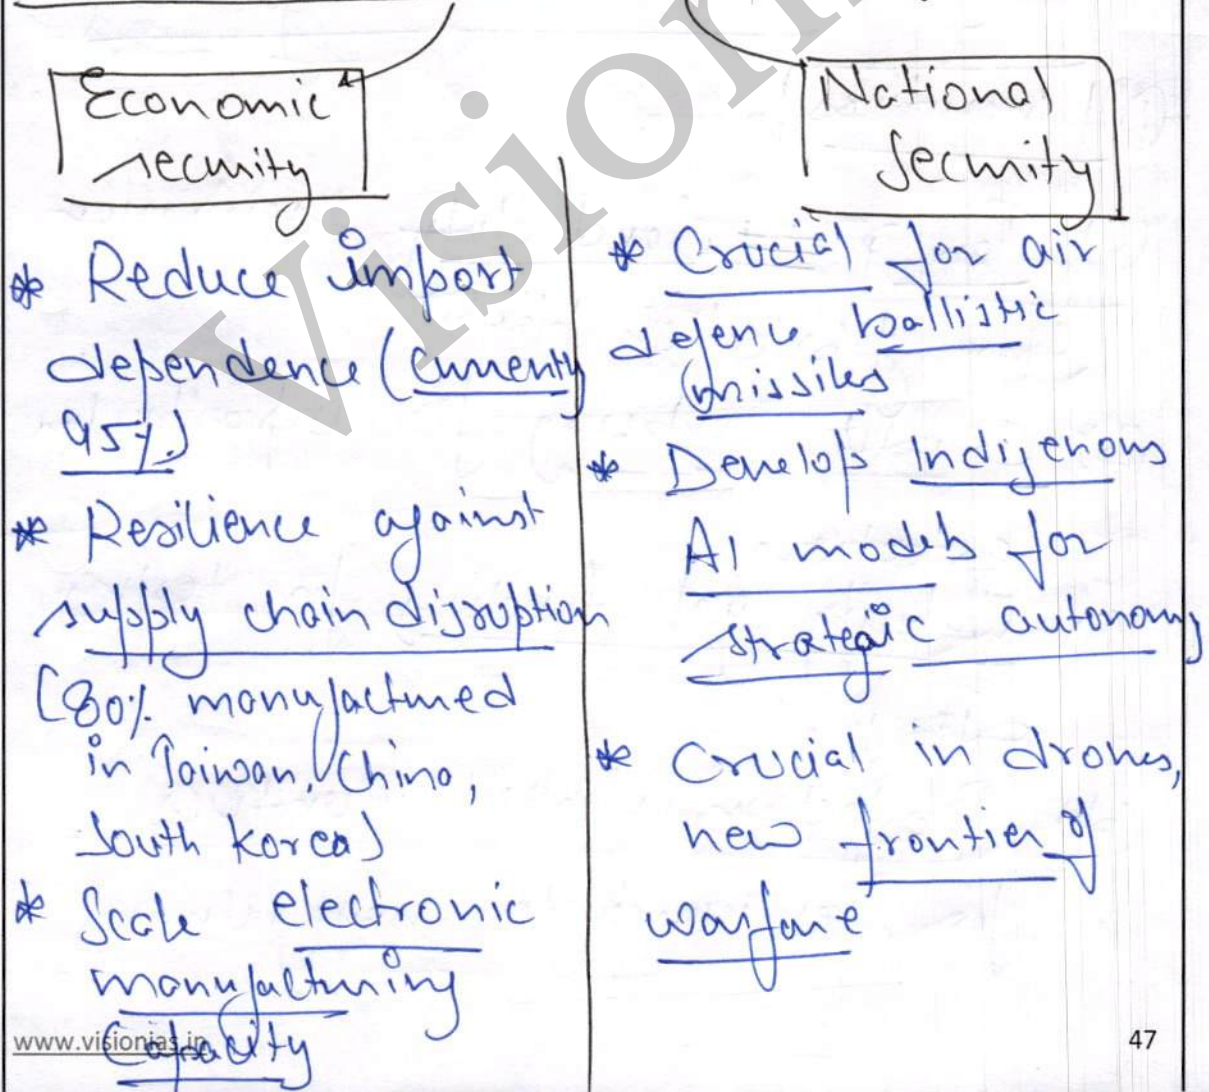 Economic
security
* Reduce import
dependence (currently
95%)
* Resilience against
supply chain disruption
(80% manufactured
in Taiwan, China,
South Korea)
* Scale electronic
manufacturing
Capacity
National
Security
* Crucial for air
defence ballistic
missiles
* Develop Indigenous
AI models for
strategic autonomy
* Crucial in drones,
new frontier of
warfare
Vision
www.visionias.in
47